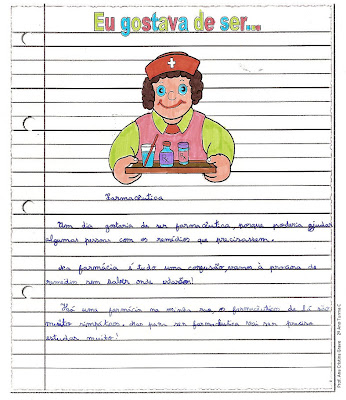 Eu gostava de ser...
Farmacêutica
Um dia gostaria de ser farmacêutica, porque poderia ajudar
algumas pessoas com os remédios que precisassem.
Na farmácia é tudo uma confusão, vamos à procura de
remédio sem saber onde
Há uma farmácia na minha rua, os farmacêuticos de lá são
muito simpáticos. Mas para ser farmacêutica vai ser preciso
estudar muito!
2º Ano Turma C